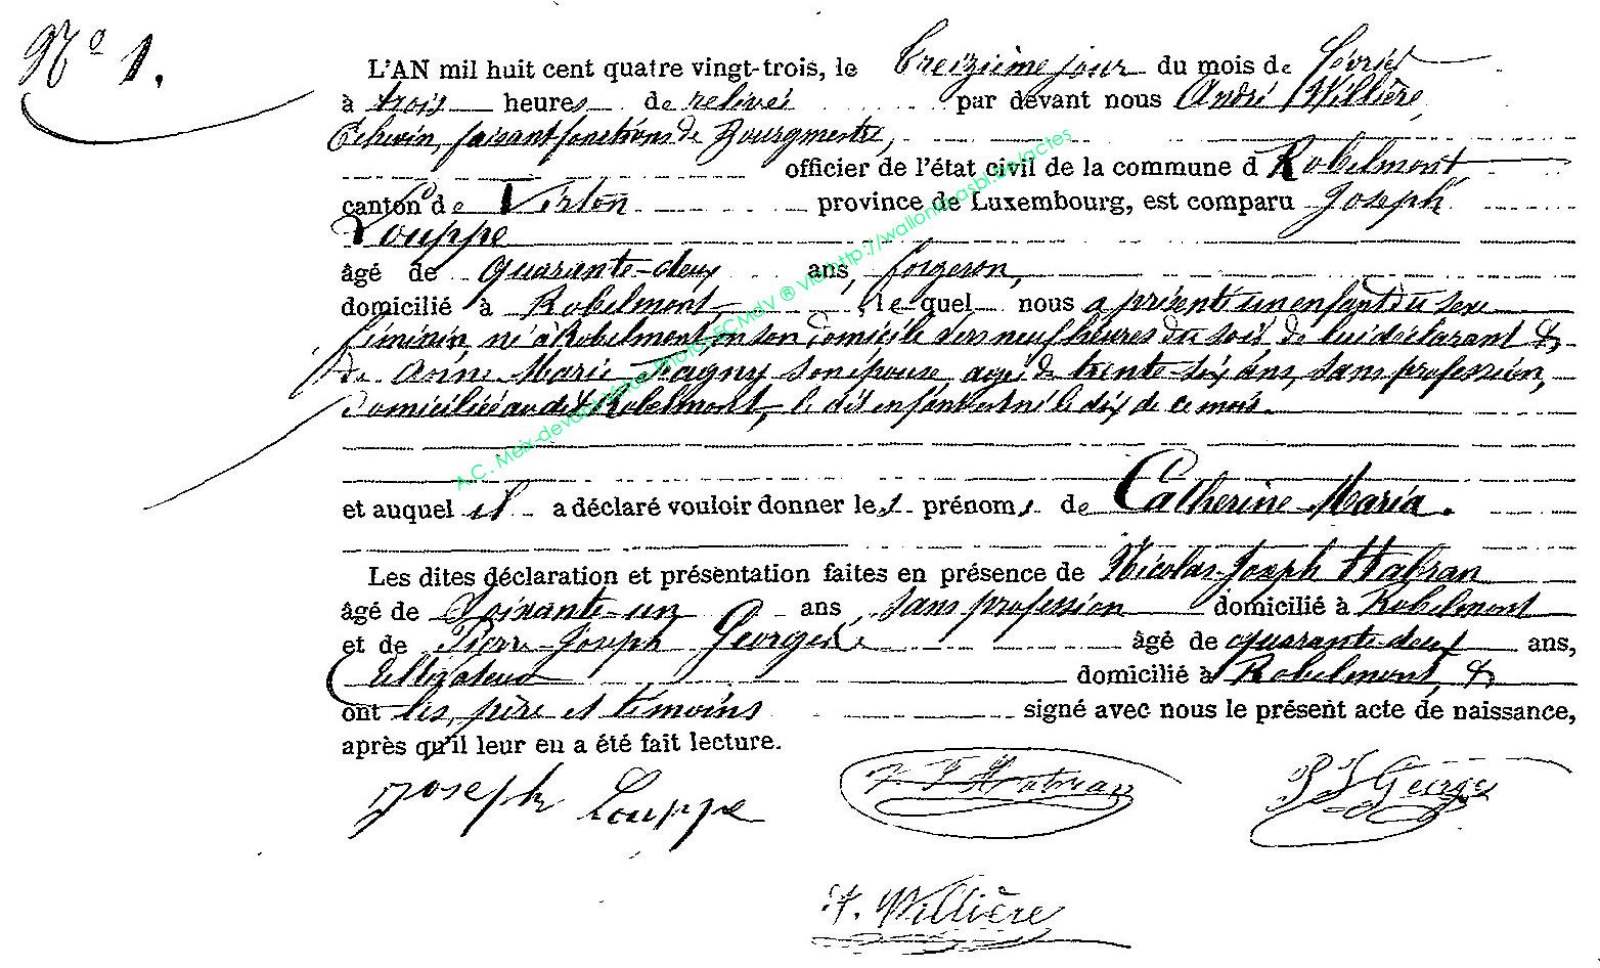 N° 1.
L'AN mil huit cent quatre vingt-trois, le treizième jour du mois de février
à trois heures de relevée par devant nous André Willière,
Echevin, faisant fonctions de Bourgmestre,
officier de l'état civil de la commune d Robelmont
canton de Virton province de Luxembourg, est comparu Joseph
Louppe
âgé de quarante-deux ans, forgeron,
domicilié à Robelmont, lequel nous a présenté un enfant du sexe
féminin, né à Robelmont, en son domicile à neuf heures du soir, de lui déclarant &
de Anne Marie Tagny son épouse, agée de trente-six ans, sans profession,
domiciliée au dit Robelmont, le dit enfant est né le dix de ce mois.
et auquel il a déclaré vouloir donner les prénoms de Catherine Maria.
Les dites déclaration et présentation faites en présence de Nicolas-Joseph Habran
âgé de Soixante-un ans, sans profession domicilié à Robelmont
et de Pierre-Joseph George âgé de quarante-deux ans,
Cultivateur domicilié à Robelmont, &
ont les père et témoins signé avec nous le présent acte de naissance,
après qu'il leur en a été fait lecture.
Joseph Louppe
N J Habran
P J George
A. Willière
A.C. Meix-devant-Virton ECMdV ® via http://wallonica asbl.be/actes